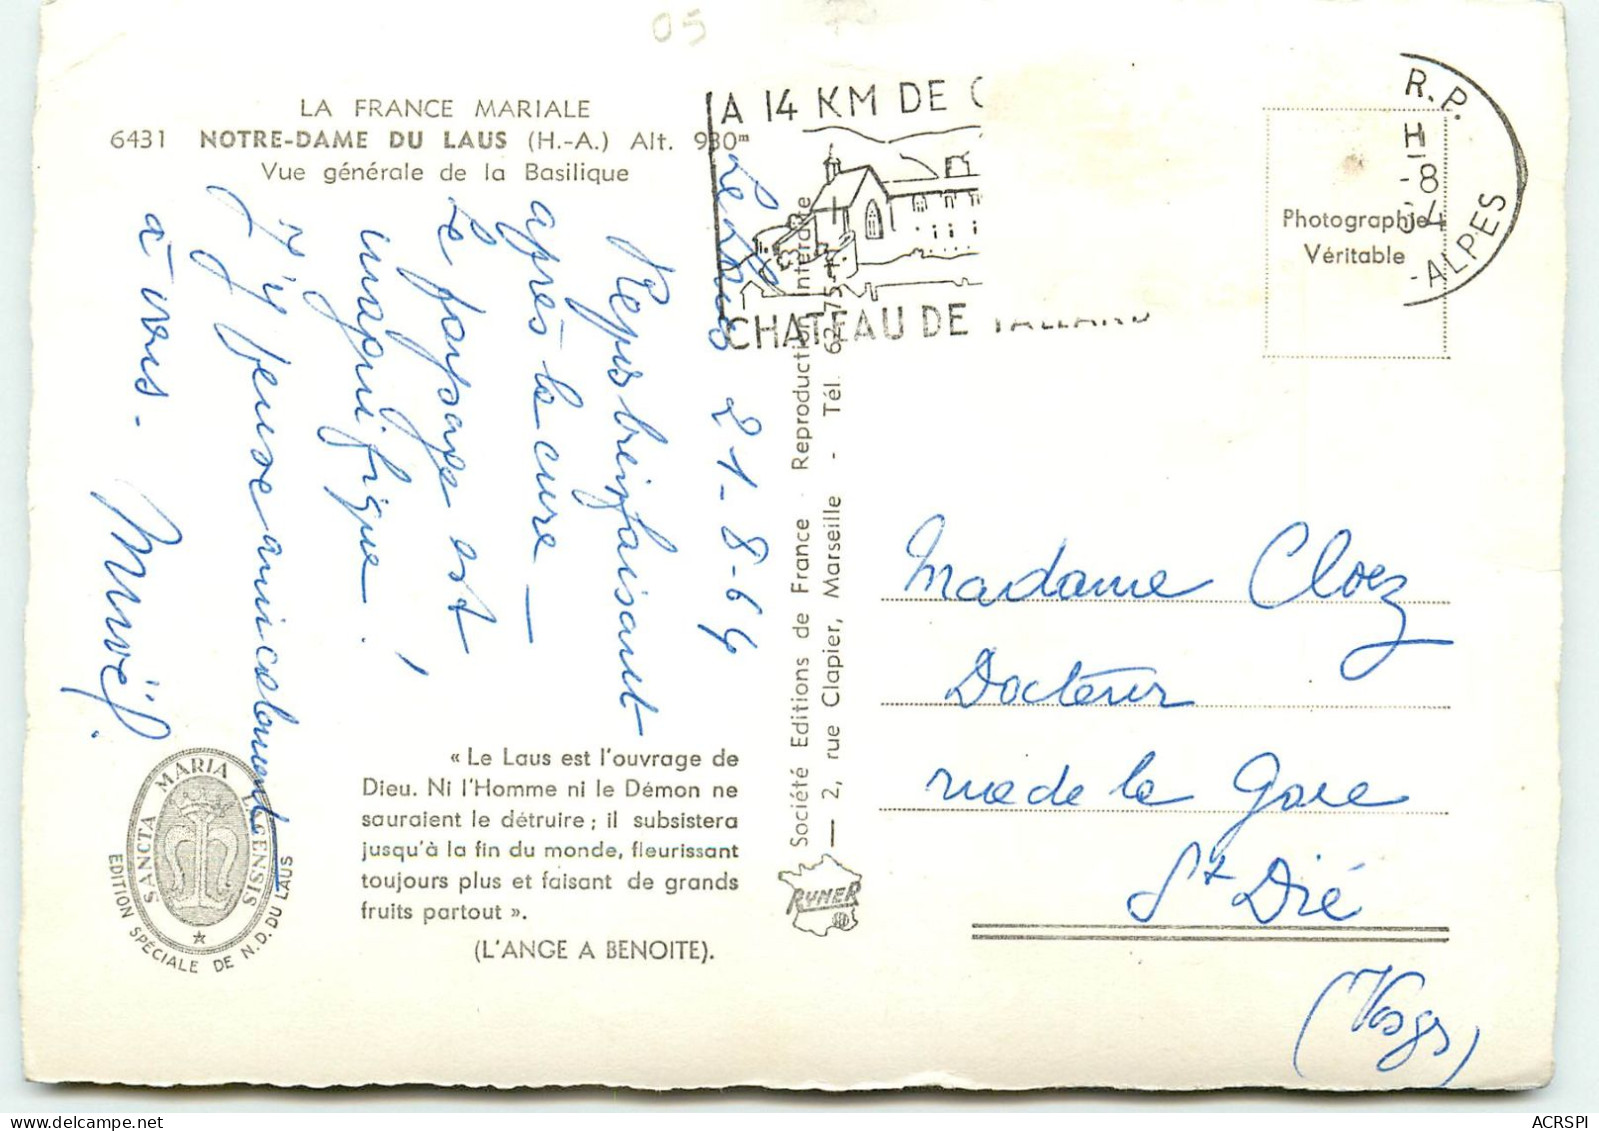 05
LA FRANCE MARIALE
6431 NOTRE-DAME DU LAUS (H.-A.) Alt. 930m
Vue générale de la Basilique
Le Laus 21-8-64
Repos bienfaisant
après la cure —
Le paysage est
magnifique !
J'y pense amicalement
à vous.
« Le Laus est l'ouvrage de
Dieu. Ni l'Homme ni le Démon ne
sauraient le détruire ; il subsistera
jusqu'à la fin du monde, fleurissant
toujours plus et faisant de grands
fruits partout ».
(L'ANGE A BENOITE).
SANCTA MARIA
EDITION SPÉCIALE DE N.D. DU LAUS
Société Editions de France Reproduction Interdite
— 2, rue Clapier, Marseille - Tél.
RYNER
A 14 KM DE
CHATEAU DE TALLARD
R.P.
H
8
-ALPES
Photographie
Véritable
Madame Cloez
Docteur
rue de la Gare
St Dié
(Vosges)
ACRSPI